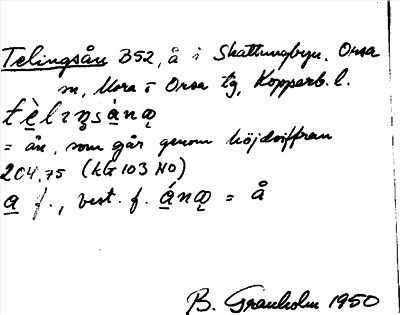 Telingsån B52, å i Skattungbyn, Orsa
sn, Mora o Orsa tg, Kopparb. l.
tèlıŋsánǫ
= ån, som går genom höjdsiffran
204,75 (kG 103 NO)
a f., best. f. ánǫ = å
B. Granholm 1950